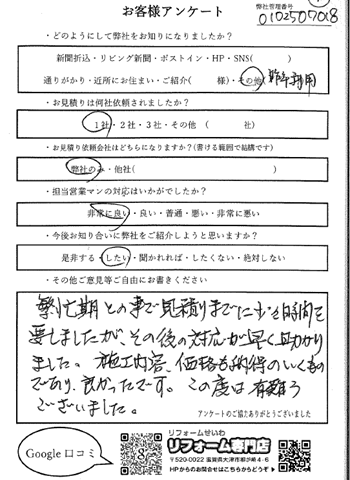 お客様アンケート
弊社管理番号
0102507018
・どのようにして弊社をお知りになりましたか？
新聞折込・リビング新聞・ポストイン・HP・SNS(　　　)
通りがかり・近所にお住まい・ご紹介(　　様)・その他(昨年利用
・お見積りは何社依頼されましたか？
1社・2社・3社・その他　(　　　社)
・お見積り依頼会社はどちらになりますか？(書ける範囲で結構です)
弊社のみ・他社(　　　　　　)
・担当営業マンの対応はいかがでしたか？
非常に良い・良い・普通・悪い・非常に悪い
・今後お知り合いに弊社をご紹介しようと思いますか？
是非する・したい・聞かれれば・したくない・絶対しない
・その他ご意見等ご自由にお書きください
繁忙期との事で見積りまでに 時間を
要しましたが、その後の対応が早く助かり
ました。施工内容、価格も納得のいくもの
であり、良かったです。この度は有難う
ございました。
アンケートのご協力ありがとうございました
Google 口コミ
リフォームせいわ
リフォーム専門店
〒520-0022 滋賀県大津市柳が崎4-6
HPからのお問合せはこちらからどうぞ▶